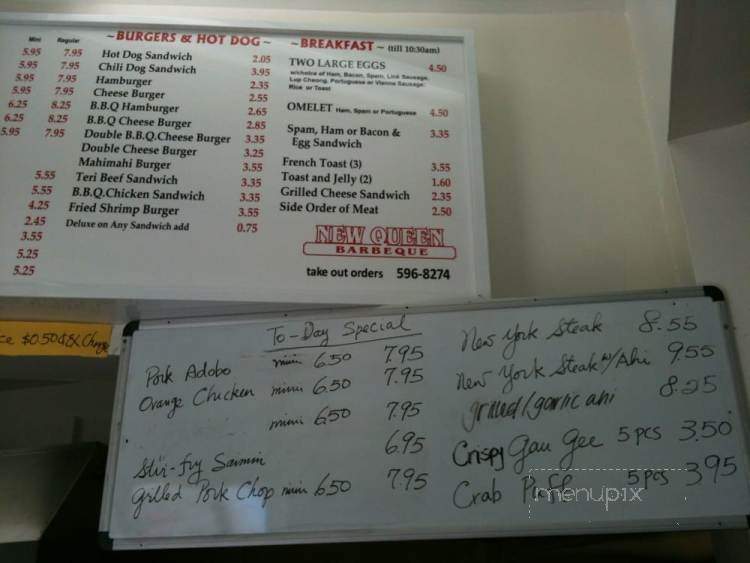 Mini Regular
5.95 7.95
5.95 7.95
5.95 7.95
5.95 7.95
6.25 8.25
6.25 8.25
5.95 7.95
5.55
5.55
4.25
2.45
3.55
5.25
5.25
~BURGERS & HOT DOG~
Hot Dog Sandwich 2.05
Chili Dog Sandwich 3.95
Hamburger 2.35
Cheese Burger 2.55
B.B.Q Hamburger 2.65
B.B.Q Cheese Burger 2.85
Double B.B.Q.Cheese Burger 3.35
Double Cheese Burger 3.25
Mahimahi Burger 3.55
Teri Beef Sandwich 3.35
B.B.Q.Chicken Sandwich 3.35
Fried Shrimp Burger 3.55
Deluxe on Any Sandwich add 0.75
~BREAKFAST~ (till 10:30am)
TWO LARGE EGGS 4.50
w/choice of Ham, Bacon, Spam, Link Sausage,
Lup Cheong, Portuguese or Vienna Sausage:
Rice or Toast
OMELET Ham, Spam or Portuguese 4.50
Spam, Ham or Bacon & 3.35
Egg Sandwich
French Toast (3) 3.55
Toast and Jelly (2) 1.60
Grilled Cheese Sandwich 2.35
Side Order of Meat 2.50
NEW QUEEN
BARBEQUE
take out orders 596-8274
To-Day Special
Pork Adobo mini 6.50 7.95
Orange Chicken mini 6.50 7.95
mini 6.50 7.95
Stir-fry Saimin 6.95
Grilled Pork Chop mini 6.50 7.95
New York Steak 8.55
New York Steak w/Ahi 9.55
grilled/garlic ahi 8.25
Crispy Gau Gee 5 pcs 3.50
Crab Puff 5 pcs 3.95
menupix